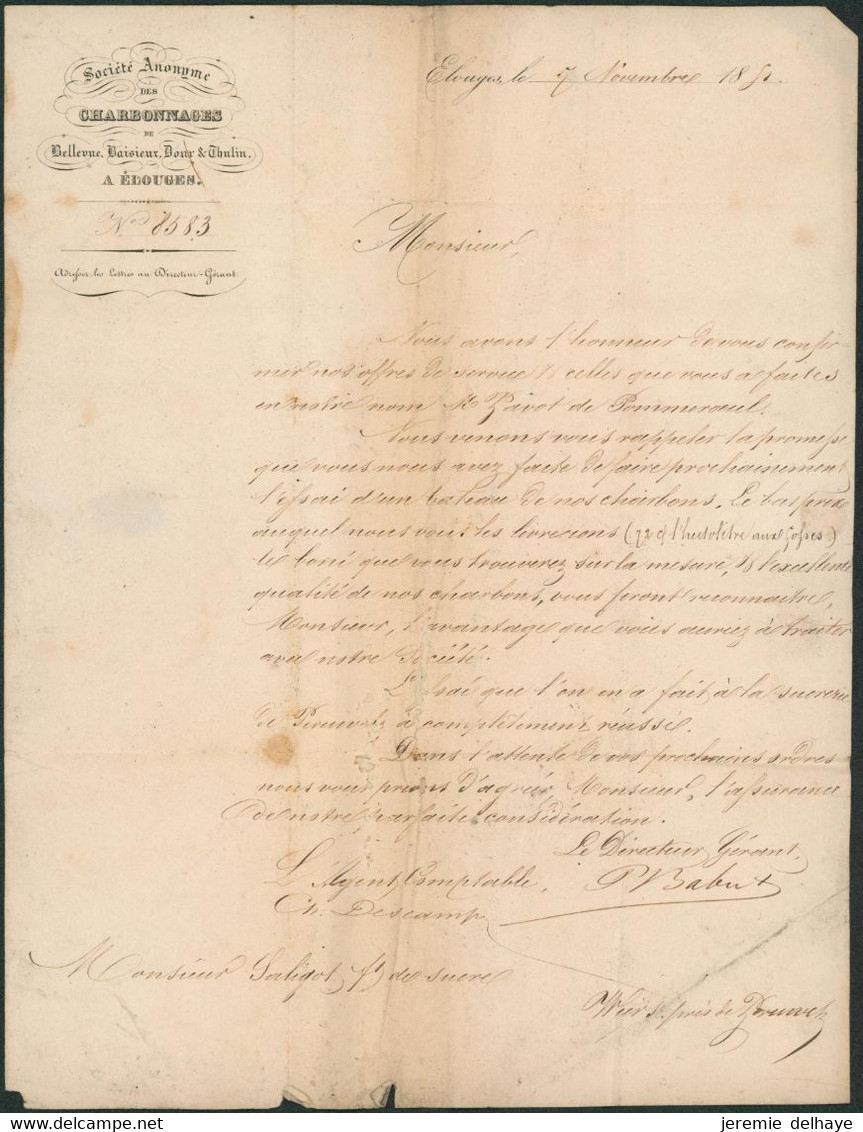 Société Anonyme
DES
CHARBONNAGES
DE
Bellevue, Baisieux, Dour & Thulin,
A ÉLOUGES.
N° 8583
Adresser les Lettres au Directeur-Gérant.
Elouges, le 7 Novembre 185
Monsieur,
Nous avons l'honneur de vous confir-
mer nos offres de service & celles que vous a faites
en notre nom Mr Pavot de Pommeroeul.
Nous venons vous rappeler la promesse
que vous nous avez faite de faire prochainement
l'essai d'un bateau de nos charbons. Le bas prix
auquel nous vous les livrerons (72 c l'hectolitre aux fosses)
le boni que vous trouverez sur la mesure, & l'excellente
qualité de nos charbons, vous feront reconnaitre,
Monsieur, l'avantage que vous auriez à traiter
avec notre Société.
L'essai que l'on en a fait, à la sucrerie
de Péruwelz à complètement réussi.
Dans l'attente de vos prochains ordres
nous vous prions d'agréer, Monsieur, l'assurance
de notre parfaite considération.
Le Directeur Gérant,
L'Agent Comptable,
Ch. Descamp
Monsieur Saligot ft de sucre
Wiers près de Péruwelz
jeremie delhaye